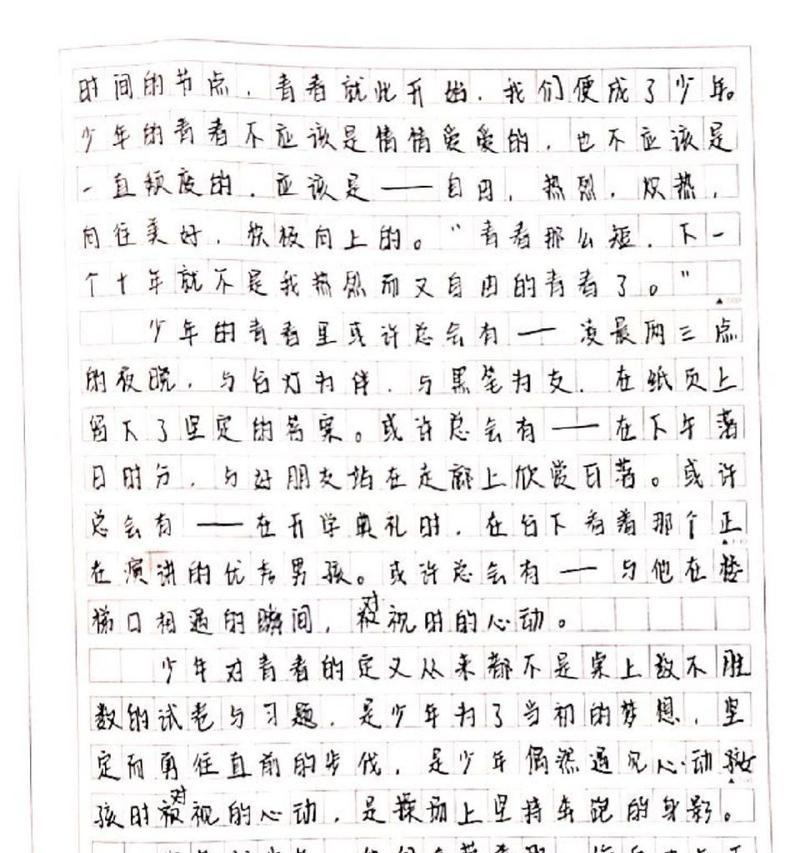 时间的节点，青春就此开始，我们便成了少年。
少年的青春不应该是情情爱爱的，也不应该是
一直颓废的，应该是——自由，热烈，炽热，
向往美好，积极向上的。“青春那么短，下一
个十年就不是我热烈而又自由的青春了。”
少年的青春里或许总会有——凌晨两三点
的夜晚，与台灯为伴，与黑笔为友，在纸页上
留下了坚定的答案。或许总会有——在下午落
日时分，与好朋友站在走廊上欣赏日落。或许
总会有——在开学典礼时，在台下看着那个正
在演讲的优秀男孩。或许总会有——与他在楼
梯口相遇的瞬间，被对视时的心动。
少年对青春的定义从来都不是桌上数不胜
数的试卷与习题，是少年为了当初的梦想，坚
定而勇往直前的步伐，是少年偶然遇见心动女
孩时被对视的心动，是操场上坚持奔跑的身影。